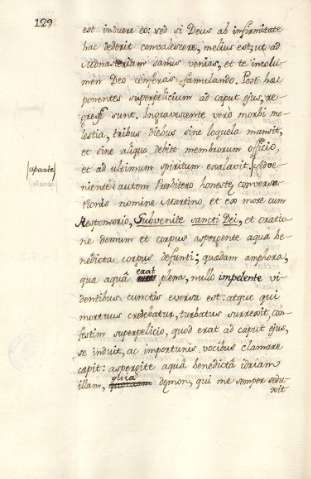 129
est induere eo: sed si Deus ab infirmitate
hac dederit convalescere, melius est, ut ad
Monasterium sanus venias, et te incolu-
men Deo conferas famulandū. Post hac
ponentes superpelicium ad caput ejus, re-
gressi sunt. Ingravescente vero morbi mo-
lestia, tribus diebus sine loquela mansit,
et sine aliquo debito membrorum officio,
et ad ultimum spiritum exalavit. Adve-
niente autem Presbitero honestę conversa-
tionis nomine Martino, et ex more cum
Responsorio, Subvenite sancti Dei, et oratio-
ne demum et corpus aspergente aqua be-
nedicta corpus defunti; quædam amphora,
qua aquâ erat plena, nullo impelente vi-
dentibus cunctis eversa est: atque qui
mortuus credebatur, turbatus surrexit, con-
festim superpelicio, quod erat ad caput ejus,
se induit, ac importunis vocibus clamare
cœpit: aspergite aquâ benedictâ idriam
illam, quia dęmon, qui me semper sedu-
xit